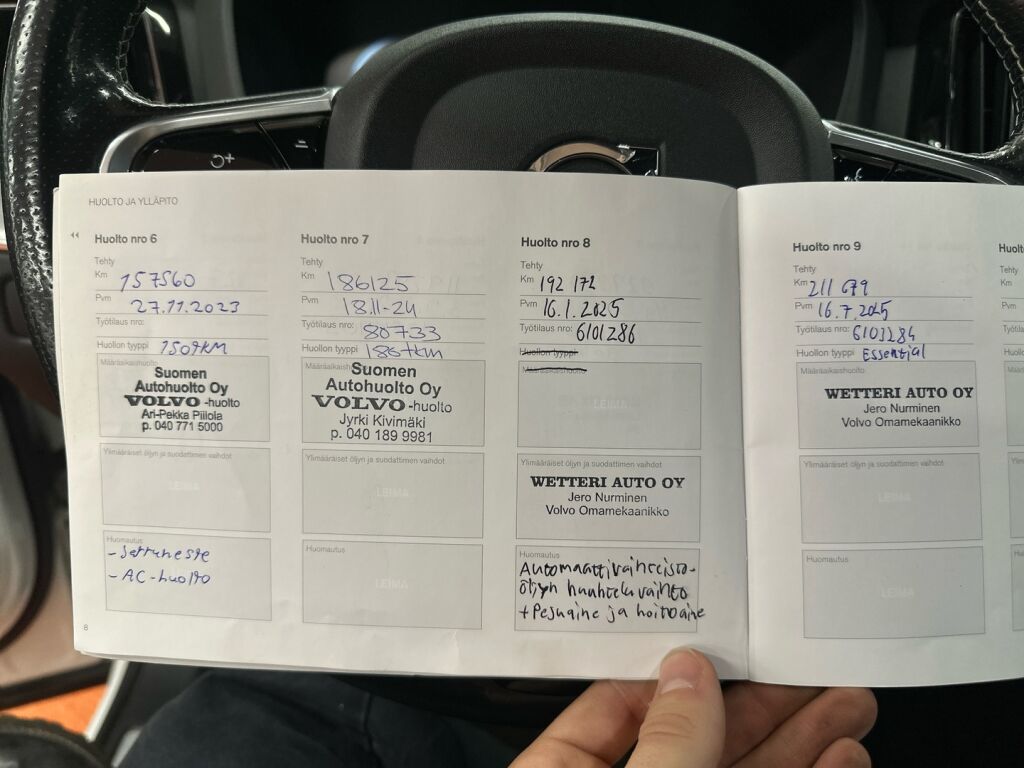 HUOLTO JA YLLÄPITO
Huolto nro 6
Tehty
Km 157560
Pvm 27.11.2023
Työtilaus nro:
Huollon tyyppi 150tKM
Määräaikaishuolto
Suomen
Autohuolto Oy
VOLVO -huolto
Ari-Pekka Piilola
p. 040 771 5000
Ylimääräiset öljyn ja suodattimen vaihdot
LEIMA
Huomautus
- Jarruneste
- AC-huolto
8
Huolto nro 7
Tehty
Km 186125
Pvm 18.11-24
Työtilaus nro: 80733
Huollon tyyppi 186tkm
Määräaikaishuolto
Suomen
Autohuolto Oy
VOLVO -huolto
Jyrki Kivimäki
p. 040 189 9981
Ylimääräiset öljyn ja suodattimen vaihdot
LEIMA
Huomautus
LEIMA
Huolto nro 8
Tehty
Km 192 172
Pvm 16.1.2025
Työtilaus nro: 6101286
Huollon tyyppi
Määräaikaishuolto
LEIMA
Ylimääräiset öljyn ja suodattimen vaihdot
WETTERI AUTO OY
Jero Nurminen
Volvo Omamekaanikko
Huomautus
Automaattivaihteisto-
öljyn huuhteluvaihto
+ Pesuaine ja hoitoaine
Huolto nro 9
Tehty
Km 211 679
Pvm 16.7.2025
Työtilaus nro: 6103284
Huollon tyyppi Essential
Määräaikaishuolto
WETTERI AUTO OY
Jero Nurminen
Volvo Omamekaanikko
Ylimääräiset öljyn ja suodattimen vaihdot
LEIMA
Huomautus
LEIMA
Huolt
Tehty
Km
Pvm